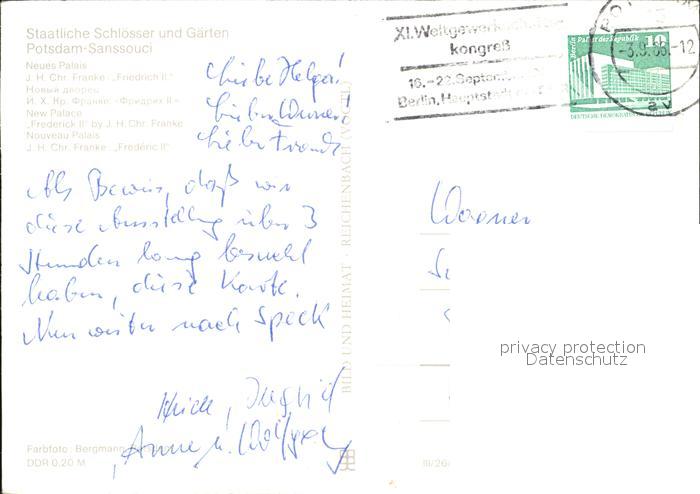 Staatliche Schlösser und Gärten
Potsdam-Sanssouci
Neues Palais
J. H. Chr. Franke: „Friedrich II“
Новый дворец
И. Х. Кр. Франке: «Фридрих II»
New Palace
„Frederick II“ by J. H. Chr. Franke
Nouveau Palais
J. H. Chr. Franke: „Frédéric II“
Liebe Helga!
Lieber Werner!
Lieber Frank
Als Beweis, daß wir
diese Ausstellung über 3
Stunden lang besucht
haben, diese Karte.
Nun weiter nach
Ingrid
Anne u. Wolfgang
Farbfoto: Bergmann
DDR 0,20 M
BILD UND HEIMAT · REICHENBACH (VOGTL)
III/26/
XI. Weltgewerkschafts-
kongreß
16.-22. September
Berlin, Hauptstadt
-3.9.86-12
av
Berlin, Palast der Republik
10
DEUTSCHE DEMOKRATISCHE
privacy protection
Datenschutz